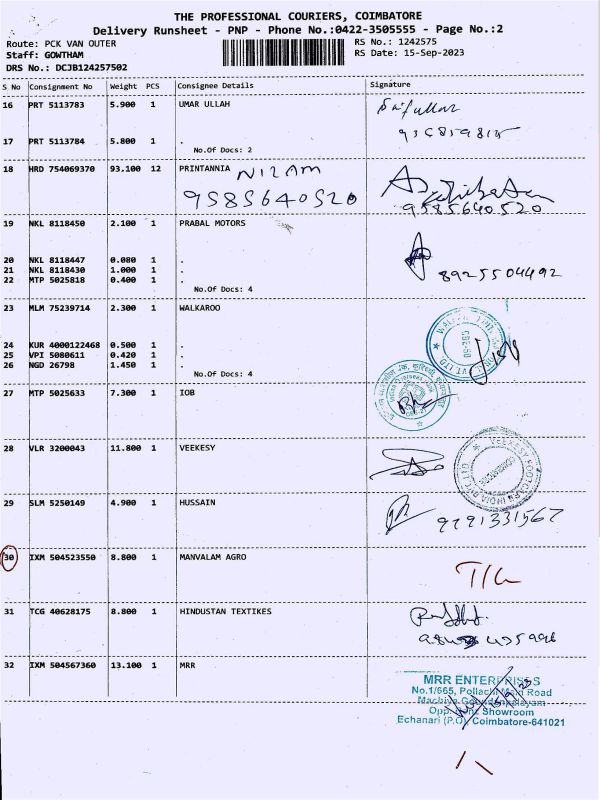 THE PROFESSIONAL COURIERS, COIMBATORE
Delivery Runsheet - PNP - Phone No.:0422-3505555 - Page No.:2
Route: PCK VAN OUTER
RS No.: 1242575
Staff: GOWTHAM
RS Date: 15-Sep-2023
DRS No.: DCJB124257502
S No Consignment No Weight PCS Consignee Details Signature
16 PRT 5113783 5.900 1 UMAR ULLAH Saifullah
17 PRT 5113784 5.800 1 .
No.Of Docs: 2
18 HRD 754069370 93.100 12 PRINTANNIA NIZAM
9585640520
9585640520
19 NKL 8118450 2.100 1 PRABAL MOTORS
20 NKL 8118447 0.080 1 .
21 NKL 8118430 1.000 1 .
8925504492
22 MTP 5025818 0.400 1 .
No.Of Docs: 4
23 MLM 75239714 2.300 1 WALKAROO
24 KUR 4000122468 0.500 1 .
25 VPI 5080611 0.420 1 .
26 NGD 26798 1.450 1 .
No.Of Docs: 4
27 MTP 5025633 7.300 1 IOB
28 VLR 3200043 11.800 1 VEEKESY
VEEKESY FOOTCARE INDIA
29 SLM 5250149 4.900 1 HUSSAIN
9791331567
30 IXM 504523550 8.800 1 MANVALAM AGRO
31 TCG 40628175 8.800 1 HINDUSTAN TEXTIKES
32 IXM 504567360 13.100 1 MRR
MRR ENTERPRISES
No.1/665, Pollachi Main Road
Showroom
Echanari (P.O), Coimbatore-641021